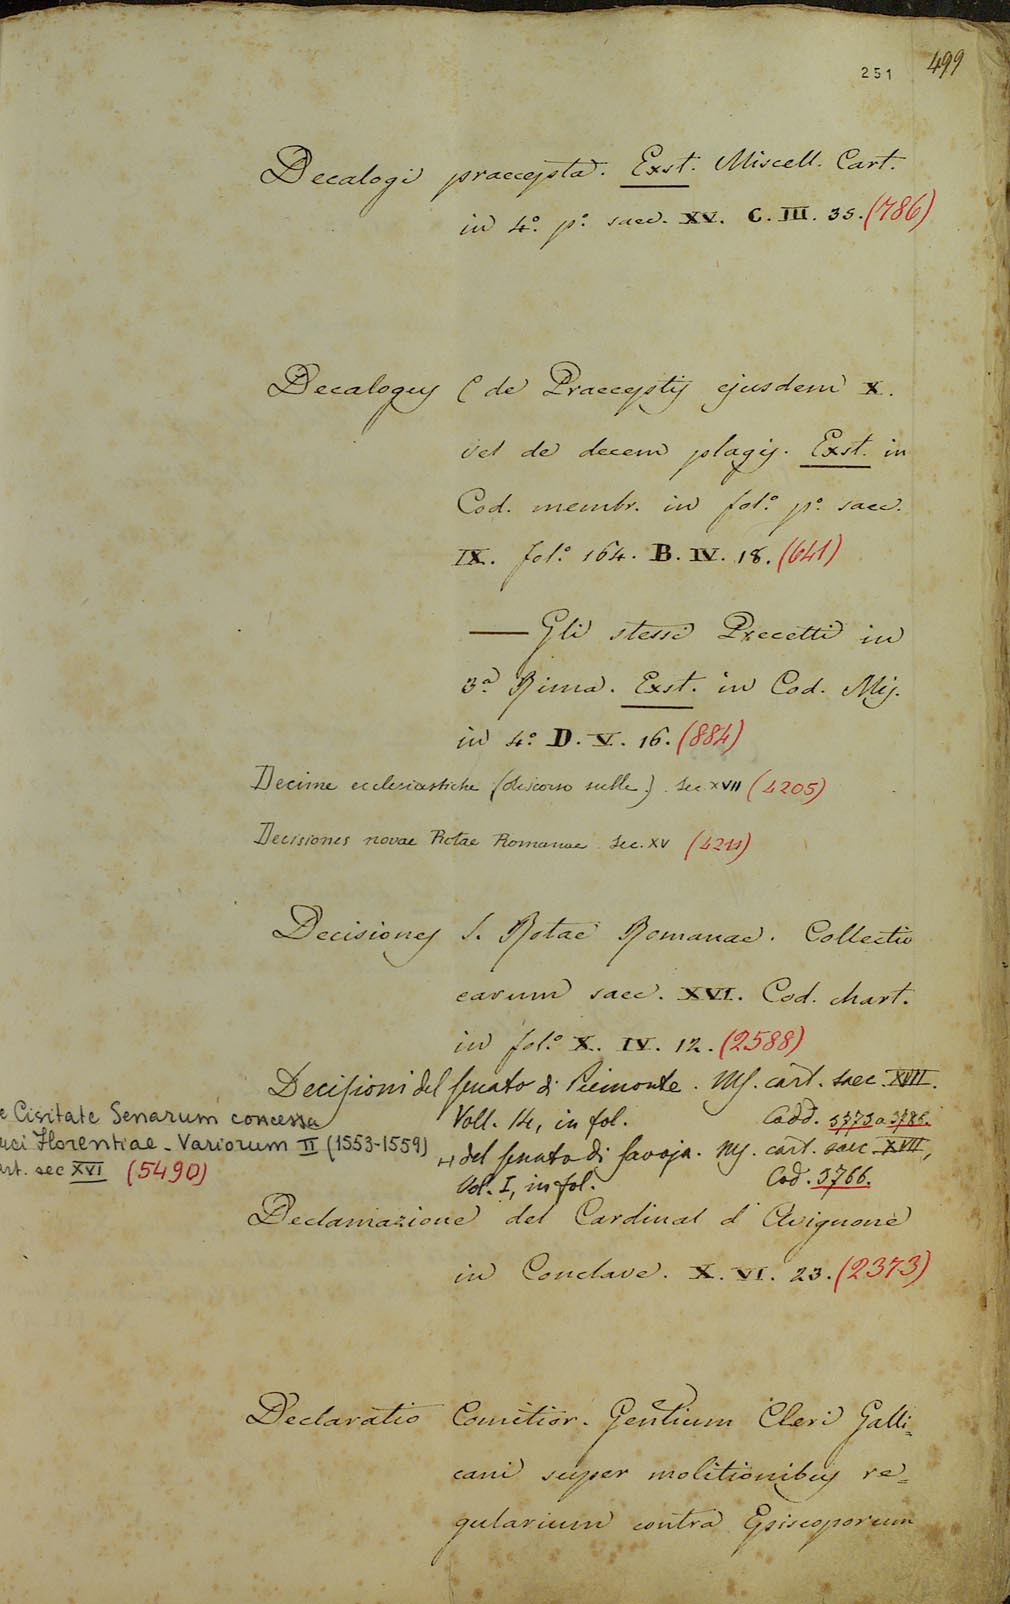 251 499
Decalogi praecepta. Exst. Miscell. Cart.
in 4.º p.º saec. XV. C. III. 35. (786)
Decalogus (de Praeceptis ejusdem X.
vel de decem plagis. Exst. in
Cod. membr. in fol.º p.º saec.
IX. fol.º 164. B. IV. 18. (641)
— Gli stessi Precetti in
3.ª Rima. Exst. in Cod. Ms.
in 4.º D. V. 16. (884)
Decime ecclesiastiche (discorso sulle) sec. XVII (4205)
Decisiones novae Rotae Romanae sec. XV (4211)
Decisiones S. Rotae Romanae. Collectio
earum saec. XVI. Cod. chart.
in fol.º X. IV. 12. (2588)
Decisioni del senato di Piemonte. Ms. cart. saec. XVIII.
Voll. 14, in fol. Codd. 3773 a 3786.
+ del senato di Savoja. Ms. cart. saec. XVII,
Vol. I, in fol. Cod. 3766.
e Civitate Senarum concessa
uci Florentiae - Variorum II (1553-1559)
art. sec XVI (5490)
Declamazione del Cardinal d'Avignone
in Conclave. X. VI. 23. (2373)
Declaratio Comitior. Gentium Cleri Galli=
cani super molitionibus re=
gularium contra Episcoporum